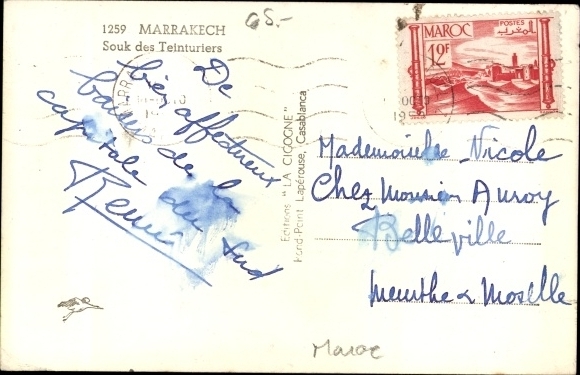 65.-
1259 MARRAKECH
Souk des Teinturiers
De
très affectueux
baisers de la
capitale du Sud
Editions "LA CIGOGNE"
Rond-Point Lapérouse, Casablanca
MAROC
POSTES
المغرب
12F
Mademoiselle Nicole
Chez Monsieur Auroy
Belleville
Meurthe & Moselle
Maroc